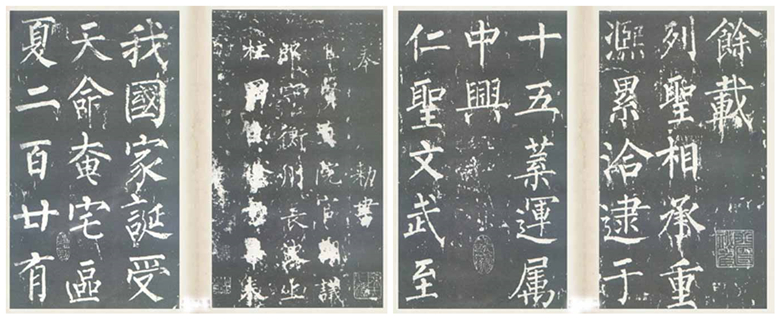 奉 勅書
院官朝議
郎守衡州長史上
柱
我國家誕受
天命奄宅區
夏二百廿有
餘載
列聖相承重
熙累洽逮于
十五葉運属
中興
仁聖文武至